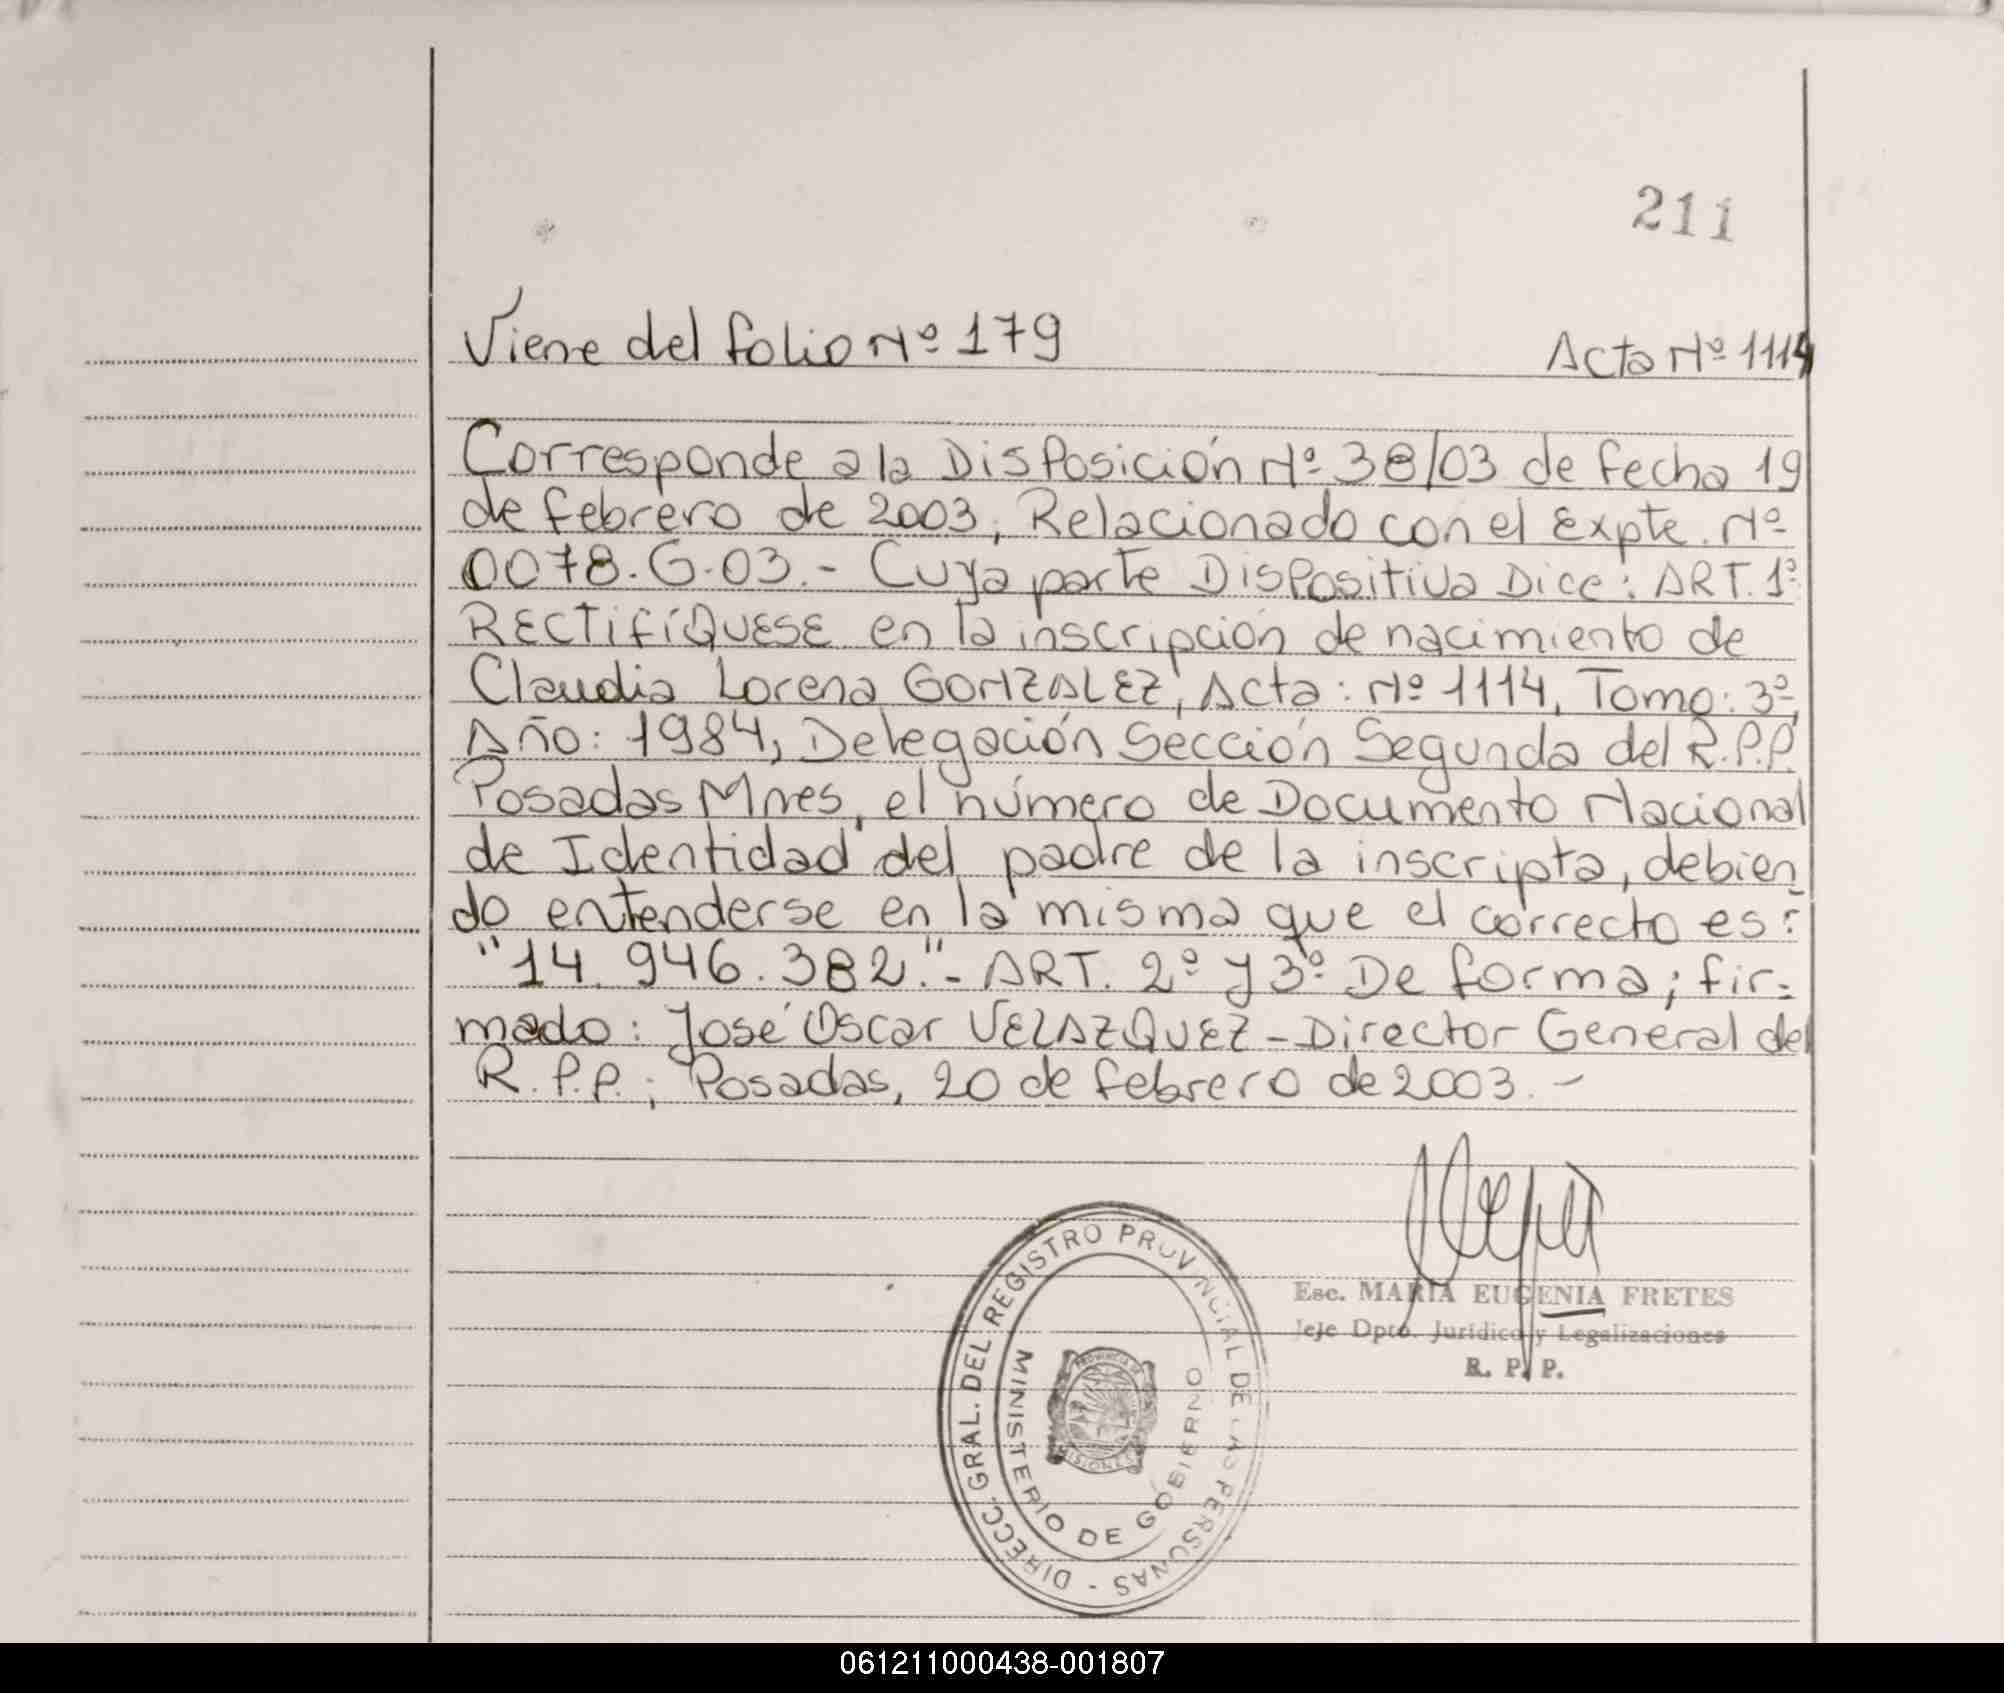 211
Viene del folio Nº 179 Acta Nº 1114
Corresponde a la Disposición Nº 38/03 de fecha 19
de febrero de 2003, Relacionado con el Expte. Nº
0078.G.03.- Cuya parte Dispositiva Dice: ART. 1º
RECTIFÍQUESE en la inscripción de nacimiento de
Claudia Lorena GONZALEZ, Acta: Nº 1114, Tomo: 3º,
Año: 1984, Delegación Sección Segunda del R.P.P.
Posadas Mnes, el número de Documento Nacional
de Identidad del padre de la inscripta, debien-
do entenderse en la misma que el correcto es:
"14.946.382."- ART. 2º y 3º De forma; fir-
mado: José Oscar VELAZQUEZ - Director General del
R.P.P.; Posadas, 20 de febrero de 2003.-
Esc. MARIA EUGENIA FRETES
Jefe Dpto. Jurídico y Legalizaciones
R. P. P.
DIRECC. GRAL. DEL REGISTRO PROVINCIAL DE LAS PERSONAS -
MINISTERIO DE GOBIERNO
PROVINCIA DE
MISIONES
061211000438-001807